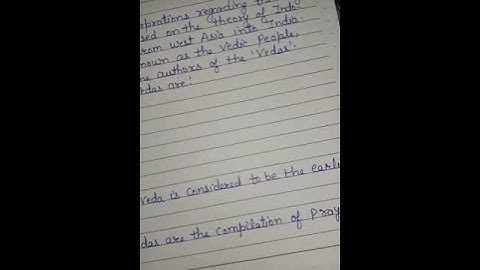 regarding the
on the theory of Indo
from west Asia into India.
known as the Vedic People,
the authors of the 'Vedas'.
are:
veda is considered to be the
are the compilation of